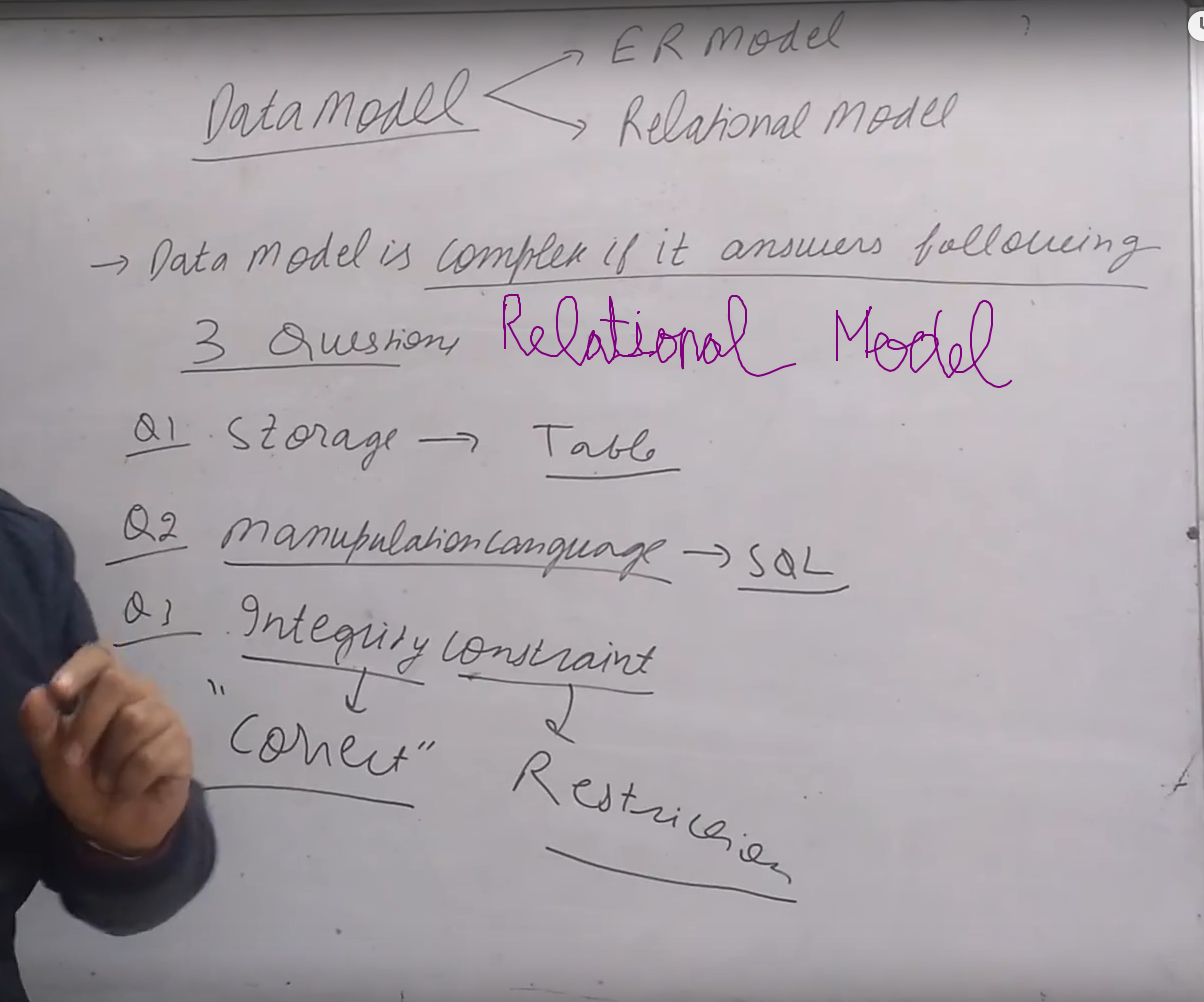 ER Model
Data Model
Relational Model
→ Data Model is complex if it answers following
3 Questions Relational Model
Q1 Storage → Table
Q2 Manupulation Language → SQL
Q3 Integrity Constraint
"Correct"
Restriction